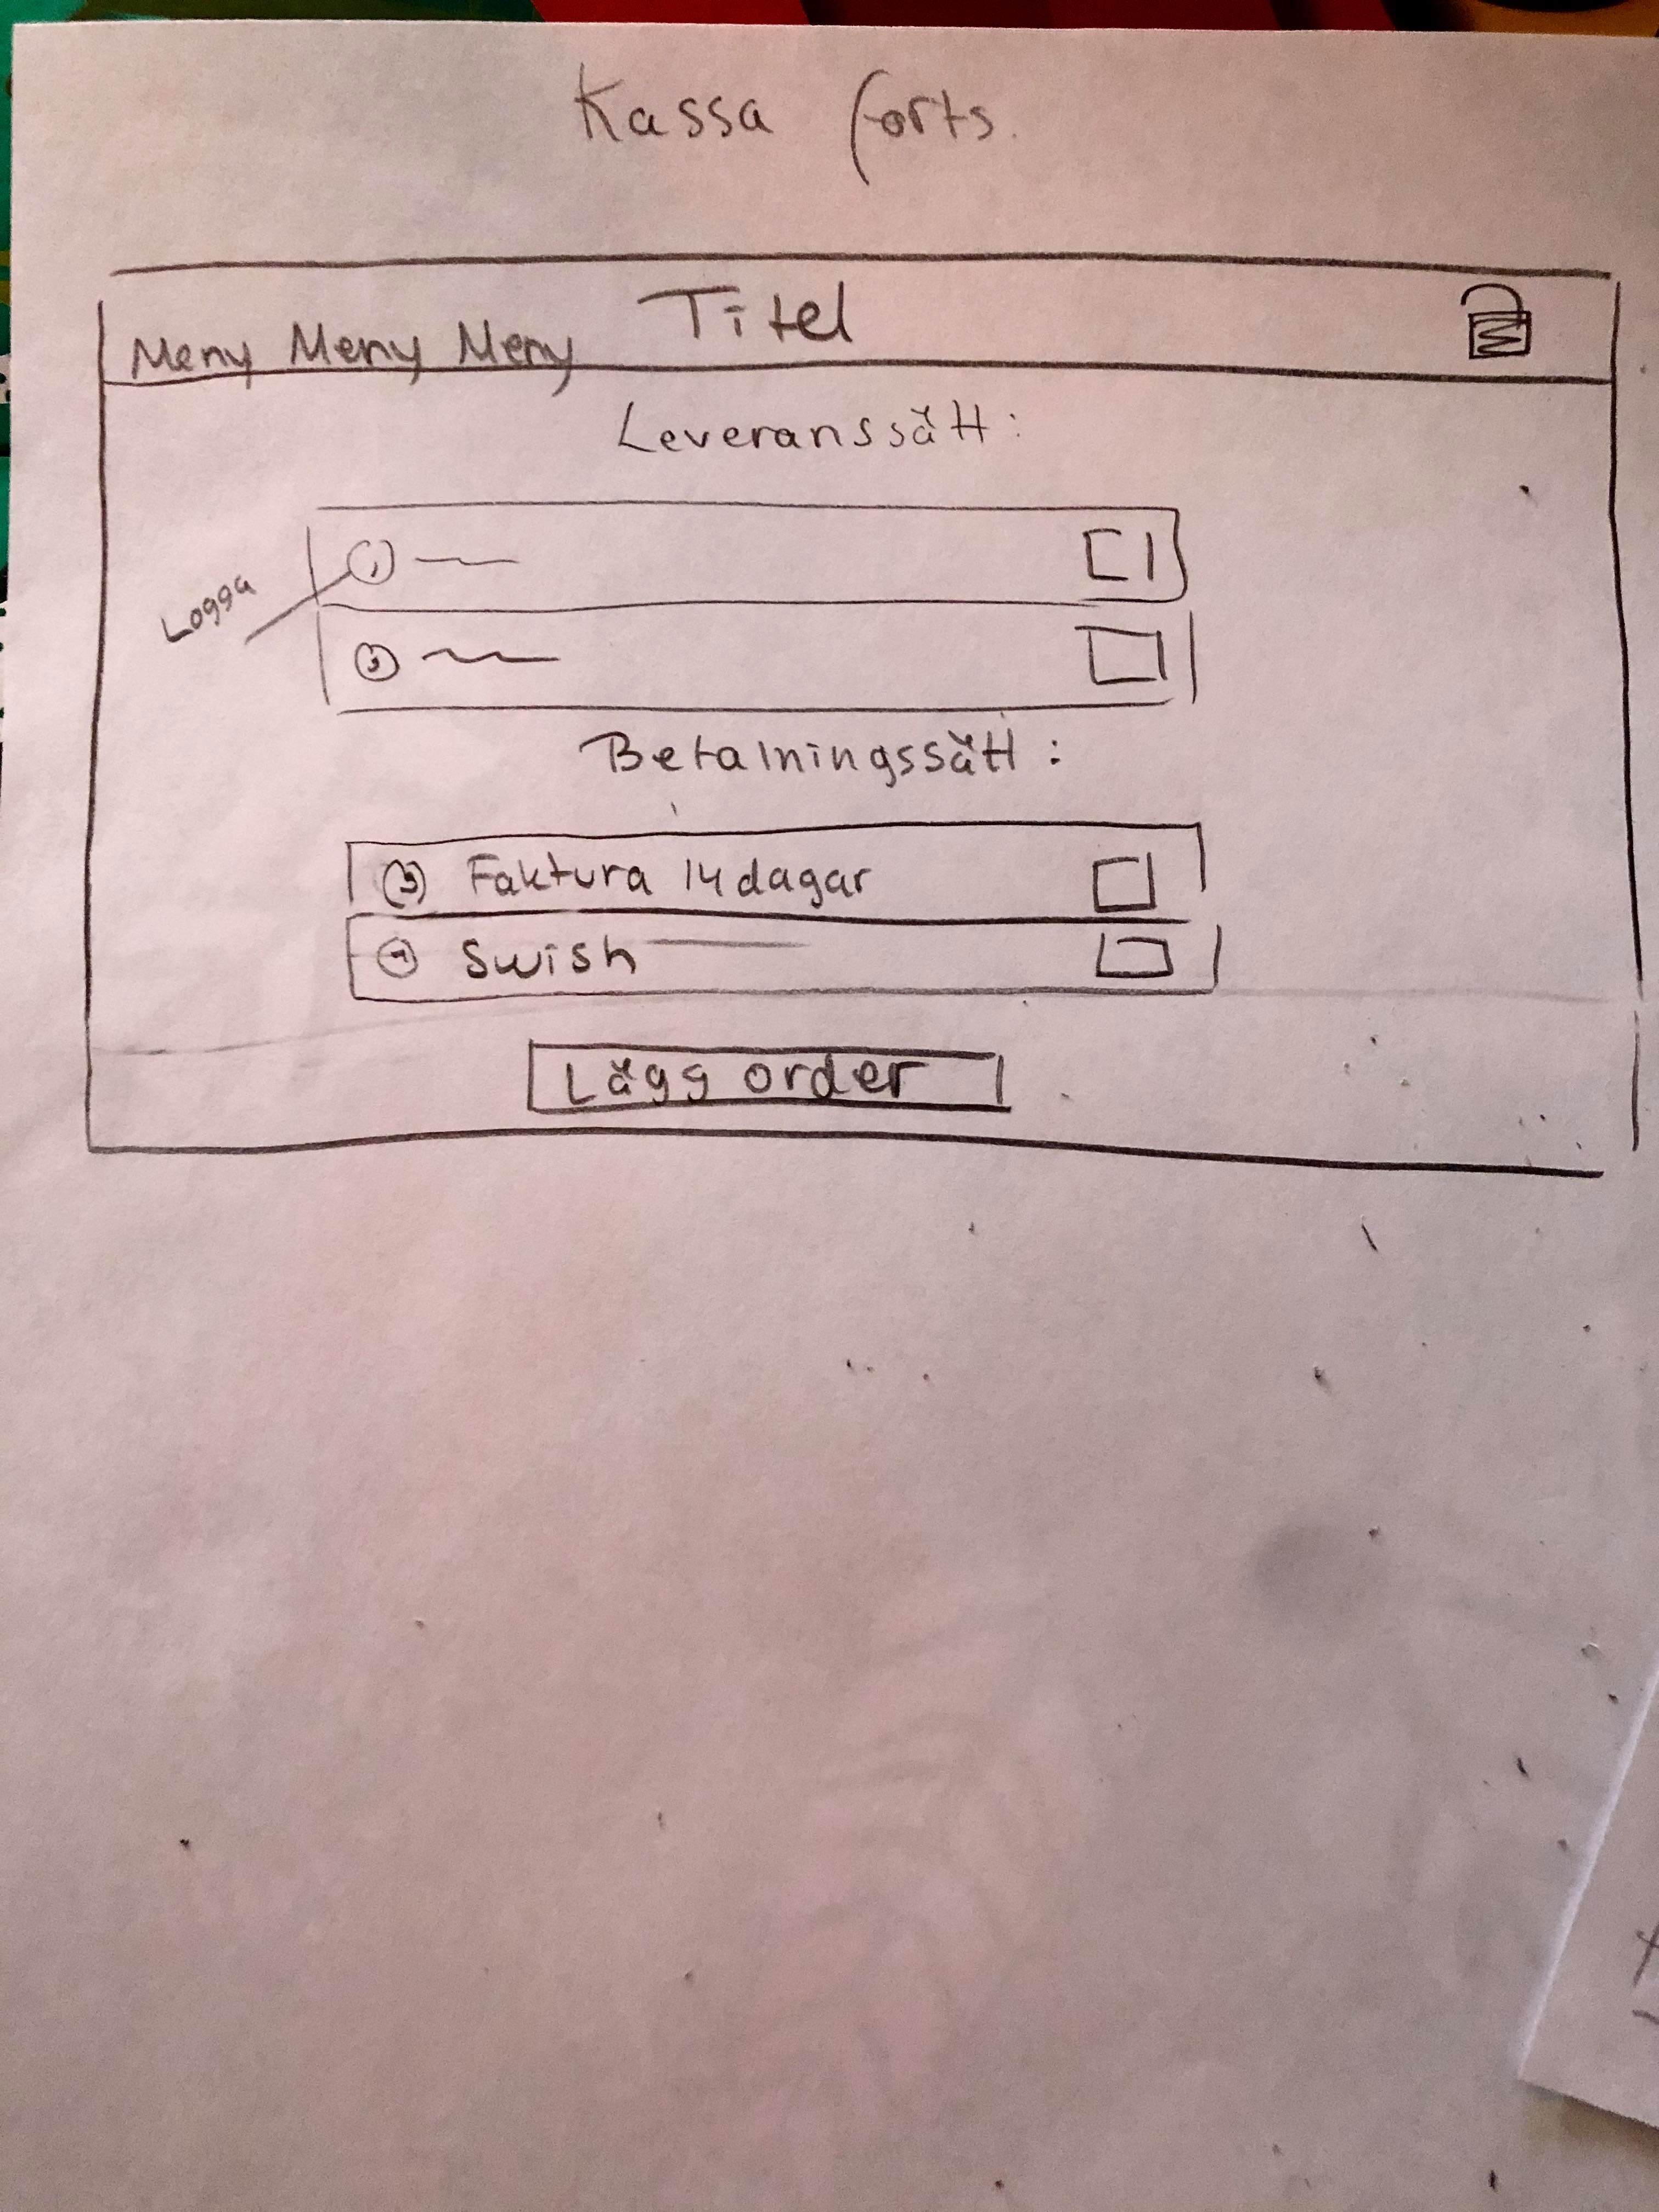 Kassa forts.
Titel
Meny Meny Meny
Leveranssätt:
Logga
Betalningssätt:
Faktura 14 dagar
Swish
Lägg order